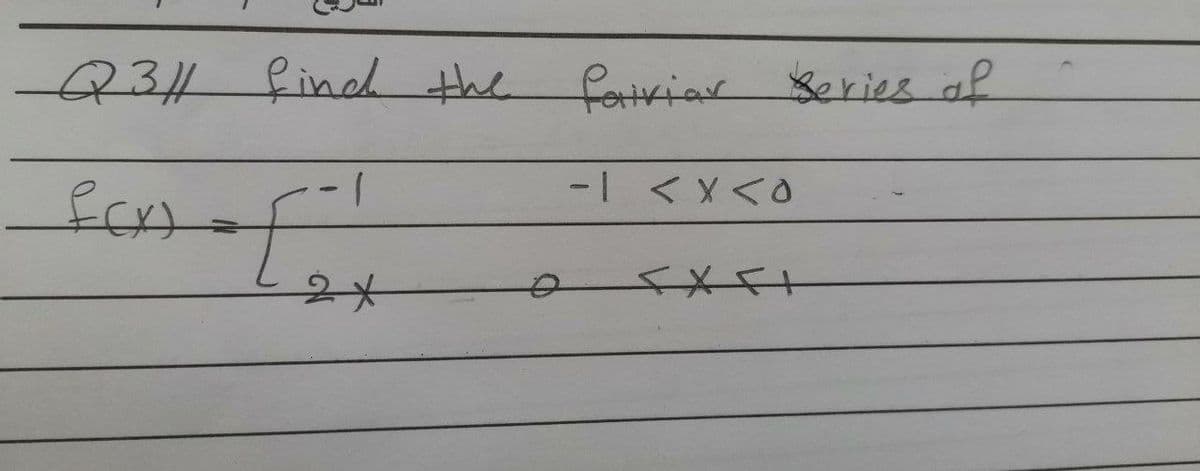 Q3// find the fairiar Series of
f(x) = { -1 -1 < x < 0
2x 0 < x < 1